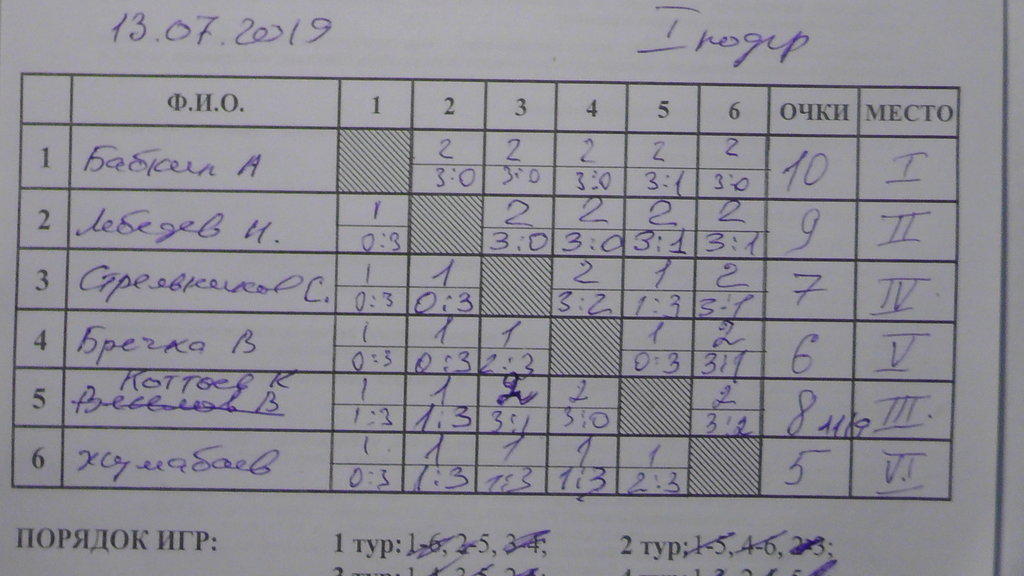 13.07.2019 I подгр
Ф.И.О. 1 2 3 4 5 6 ОЧКИ МЕСТО
1 Бабкин А 2 2 2 2 2 10 I
3:0 3:0 3:0 3:1 3:0
2 Лебедев Н. 1 2 2 2 2 9 II
0:3 3:0 3:0 3:1 3:1
3 Стрелвников С. 1 1 2 1 2 7 IV
0:3 0:3 3:2 1:3 3:1
4 Бречка В 1 1 1 1 2 6 V
0:3 0:3 2:3 0:3 3:1
Коттоев К
5 Веселов В 1 1 2 2 2 8 III
1:3 1:3 3:1 3:0 3:2
6 Жумабаев 1 1 1 1 1 5 VI
0:3 1:3 1:3 1:3 2:3
ПОРЯДОК ИГР: 1 тур: 1-6, 2-5, 3-4; 2 тур; 1-5, 4-6, 2-3;